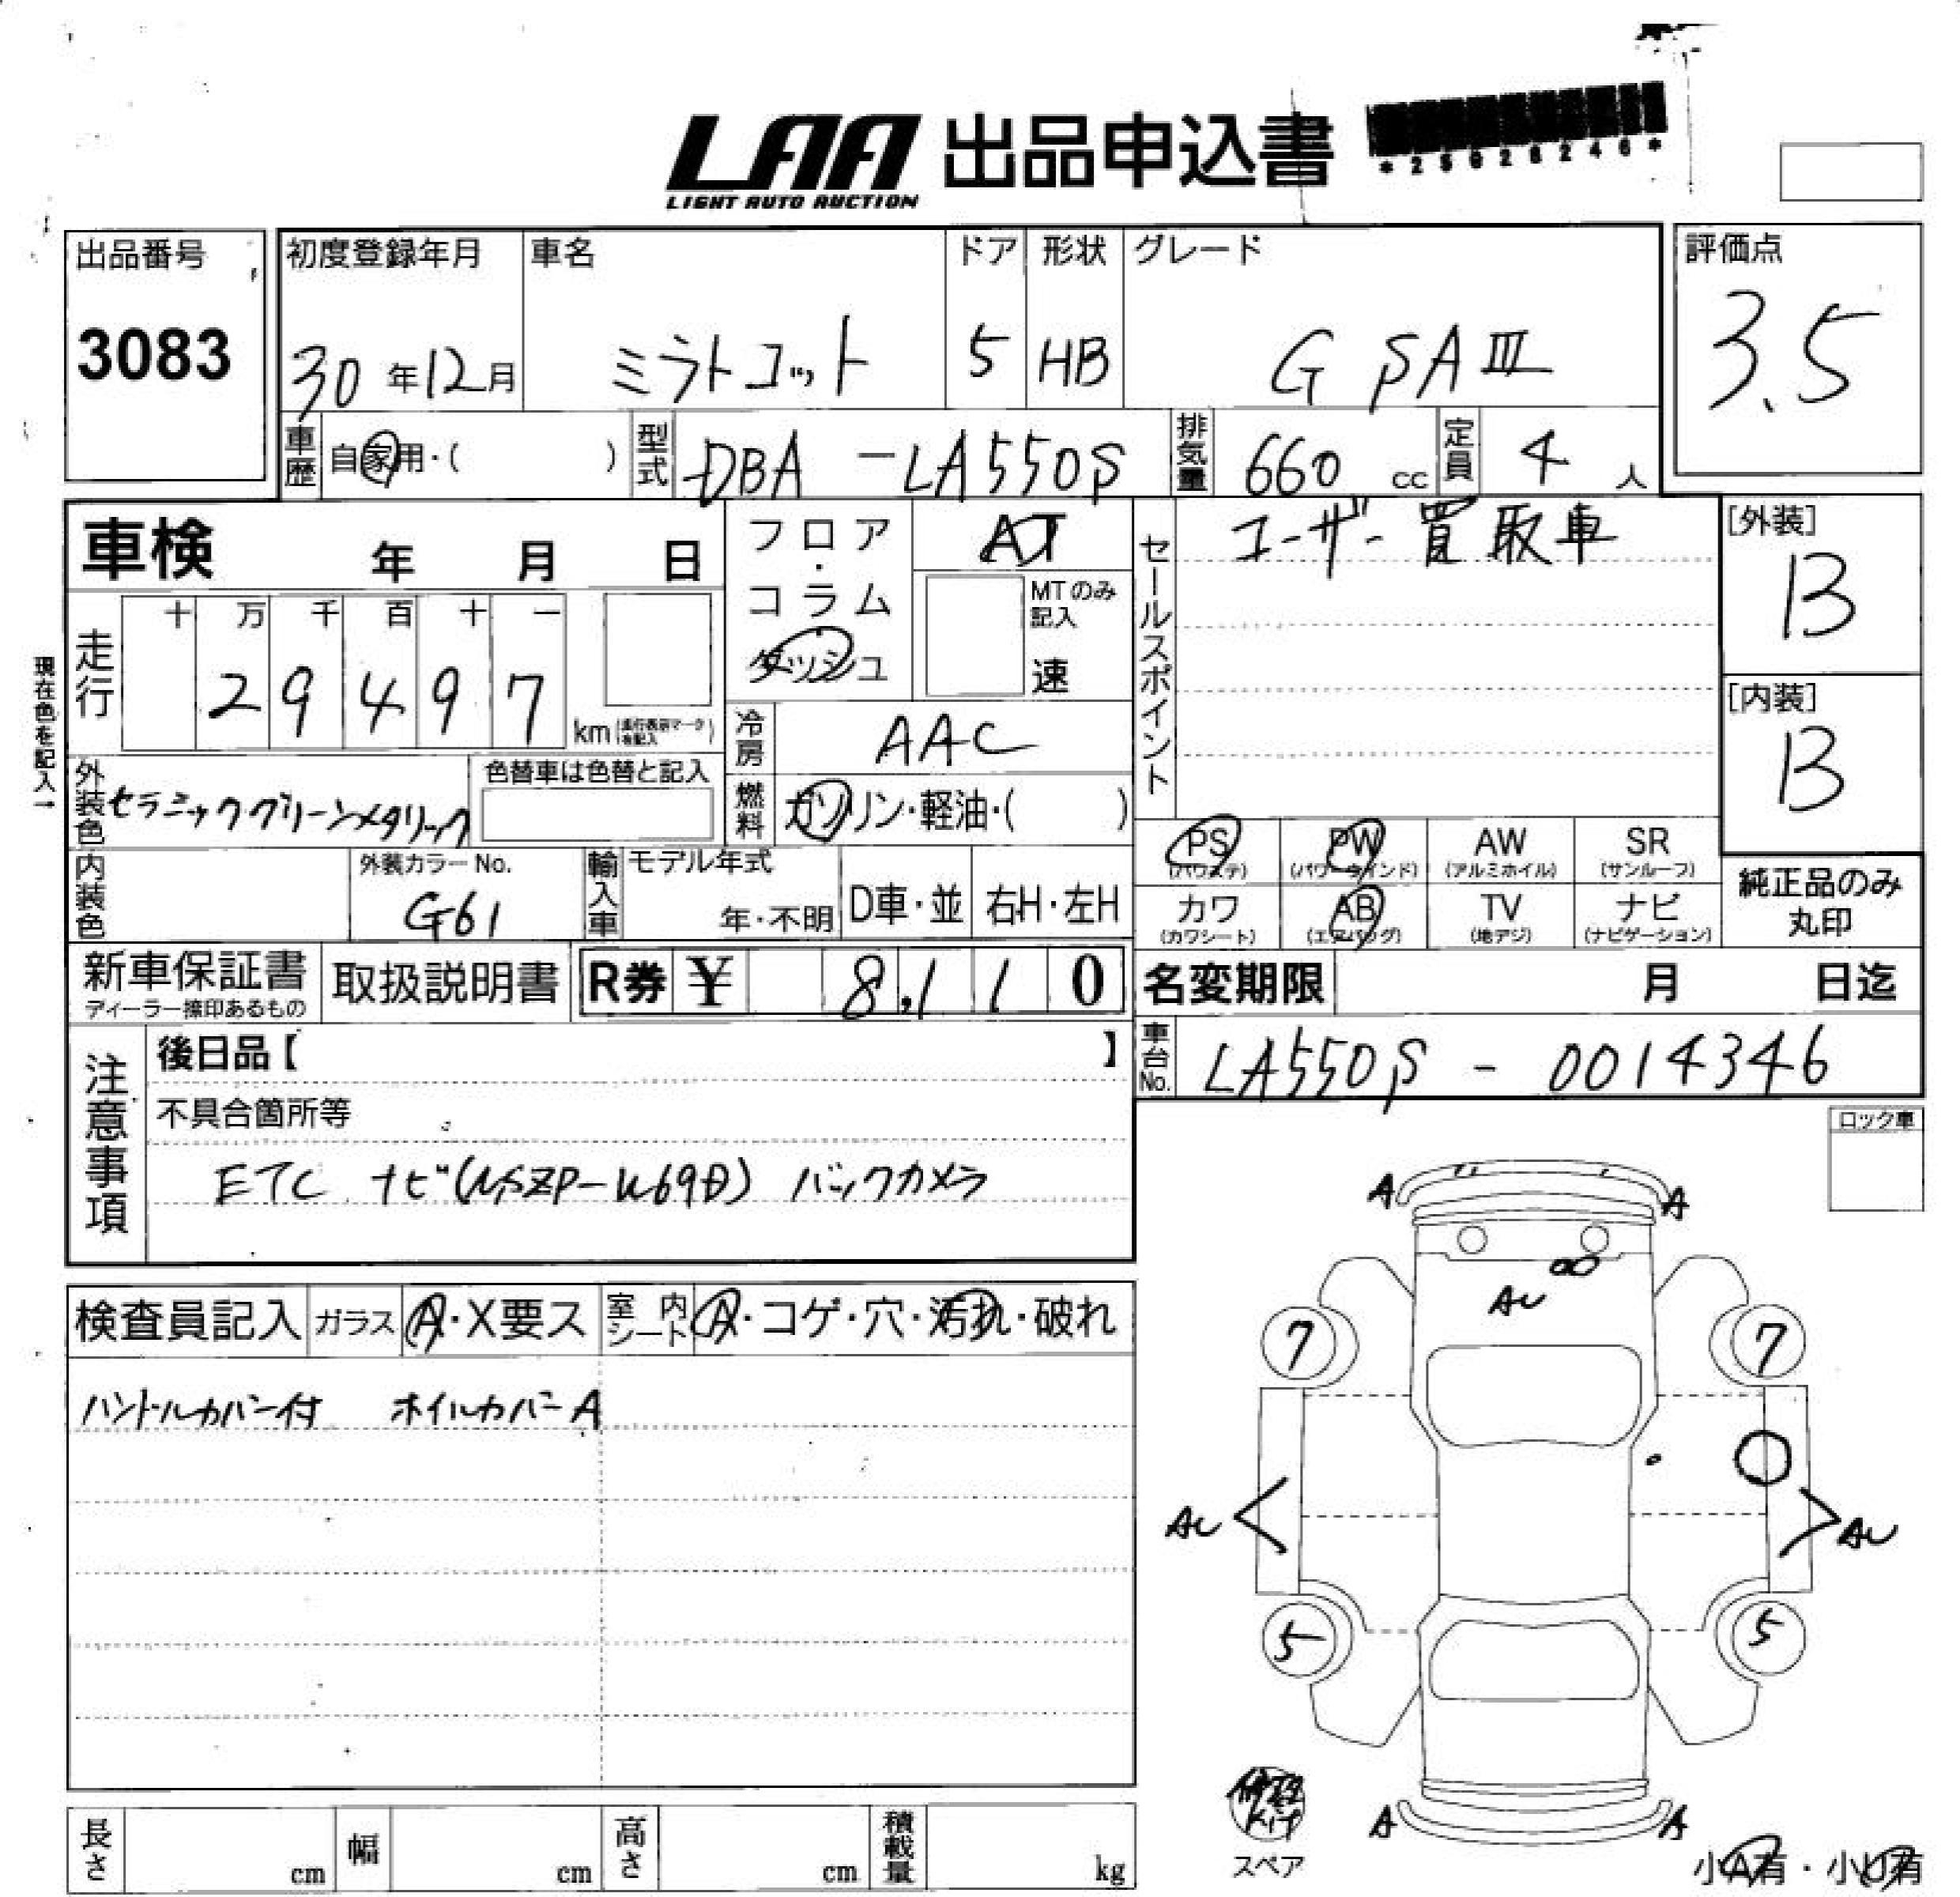 LAA 出品申込書
LIGHT AUTO AUCTION
出品番号 初度登録年月 車名 ドア 形状 グレード 評価点
3083 30年12月 ミラトコット 5 HB G SAⅢ 3.5
車歴 自家用・( ) 型式 DBA-LA550S 排気量 660 cc 定員 4 人
車検 年 月 日 フロア・ AT セールスポイント ユーザー買取車 [外装]
B
走行 十 万 千 百 十 一 コラム MTのみ記入
2 9 4 9 7 km ダッシュ 速 [内装]
B
現在色を記入→
冷房 AAC
外装色 セラミックグリーンメタリック 色替車は色替と記入 燃料 ガソリン・軽油・( )
PS (パワステ) PW (パワーウインド) AW (アルミホイル) SR (サンルーフ)
内装色 外装カラーNo. G61 輸入車 モデル年式 年・不明 D車・並 右H・左H
カワ (カワシート) AB (エアバッグ) TV (地デジ) ナビ (ナビゲーション) 純正品のみ丸印
新車保証書 ディーラー捺印あるもの 取扱説明書 R券 ¥ 8,110 名変期限 月 日迄
注意事項 後日品【 】 車台No. LA550S-0014346
不具合箇所等 ロック車
ETC ナビ(NSZP-W69D) バックカメラ
A A
AU
検査員記入 ガラス A・X要ス 室内シート A・コゲ・穴・汚れ・破れ
7 7
ハンドルカバー付 ホイルカバーA
AU AU
5 5
修理Kit
スペア
A A
長さ cm 幅 cm 高さ cm 積載量 kg
小A有・小U有